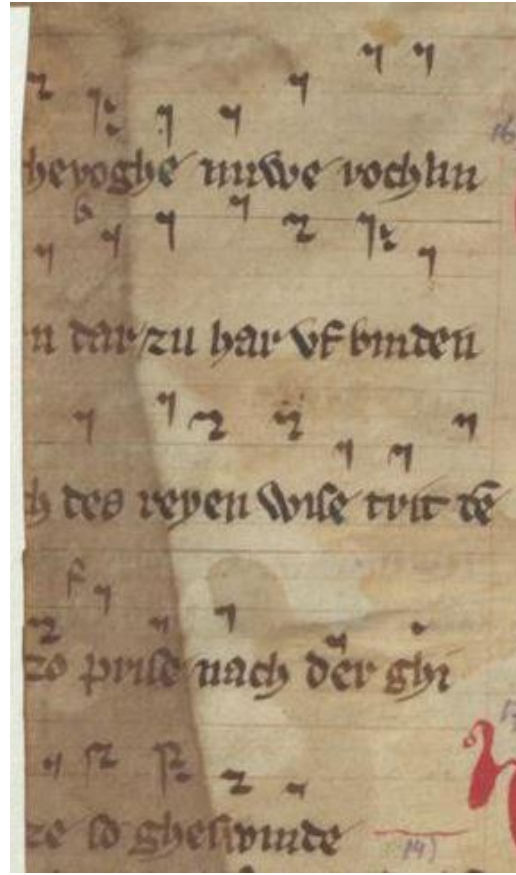 nuwe rochlin
n dar/zu har vf binden
h des reyen wise trit dē
zo prise nach der ghi
ze so gheswinde
14)